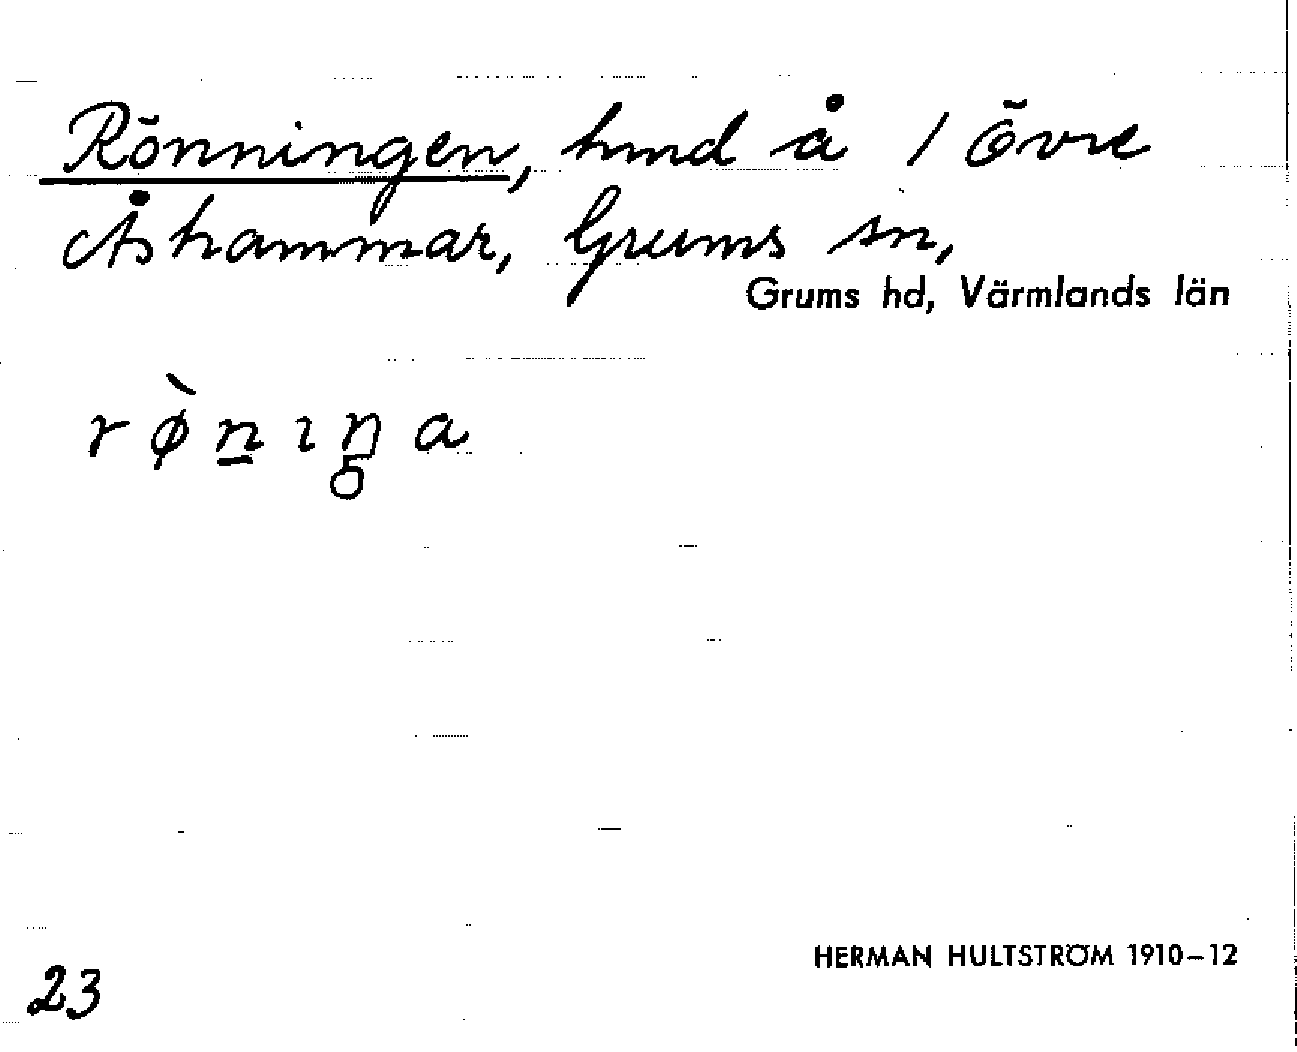 Rönningen, hmd å 1 Övre
Åshammar, Grums sn,
Grums hd, Värmlands län
rø̀n̲ıŋa
23
HERMAN HULTSTRÖM 1910–12